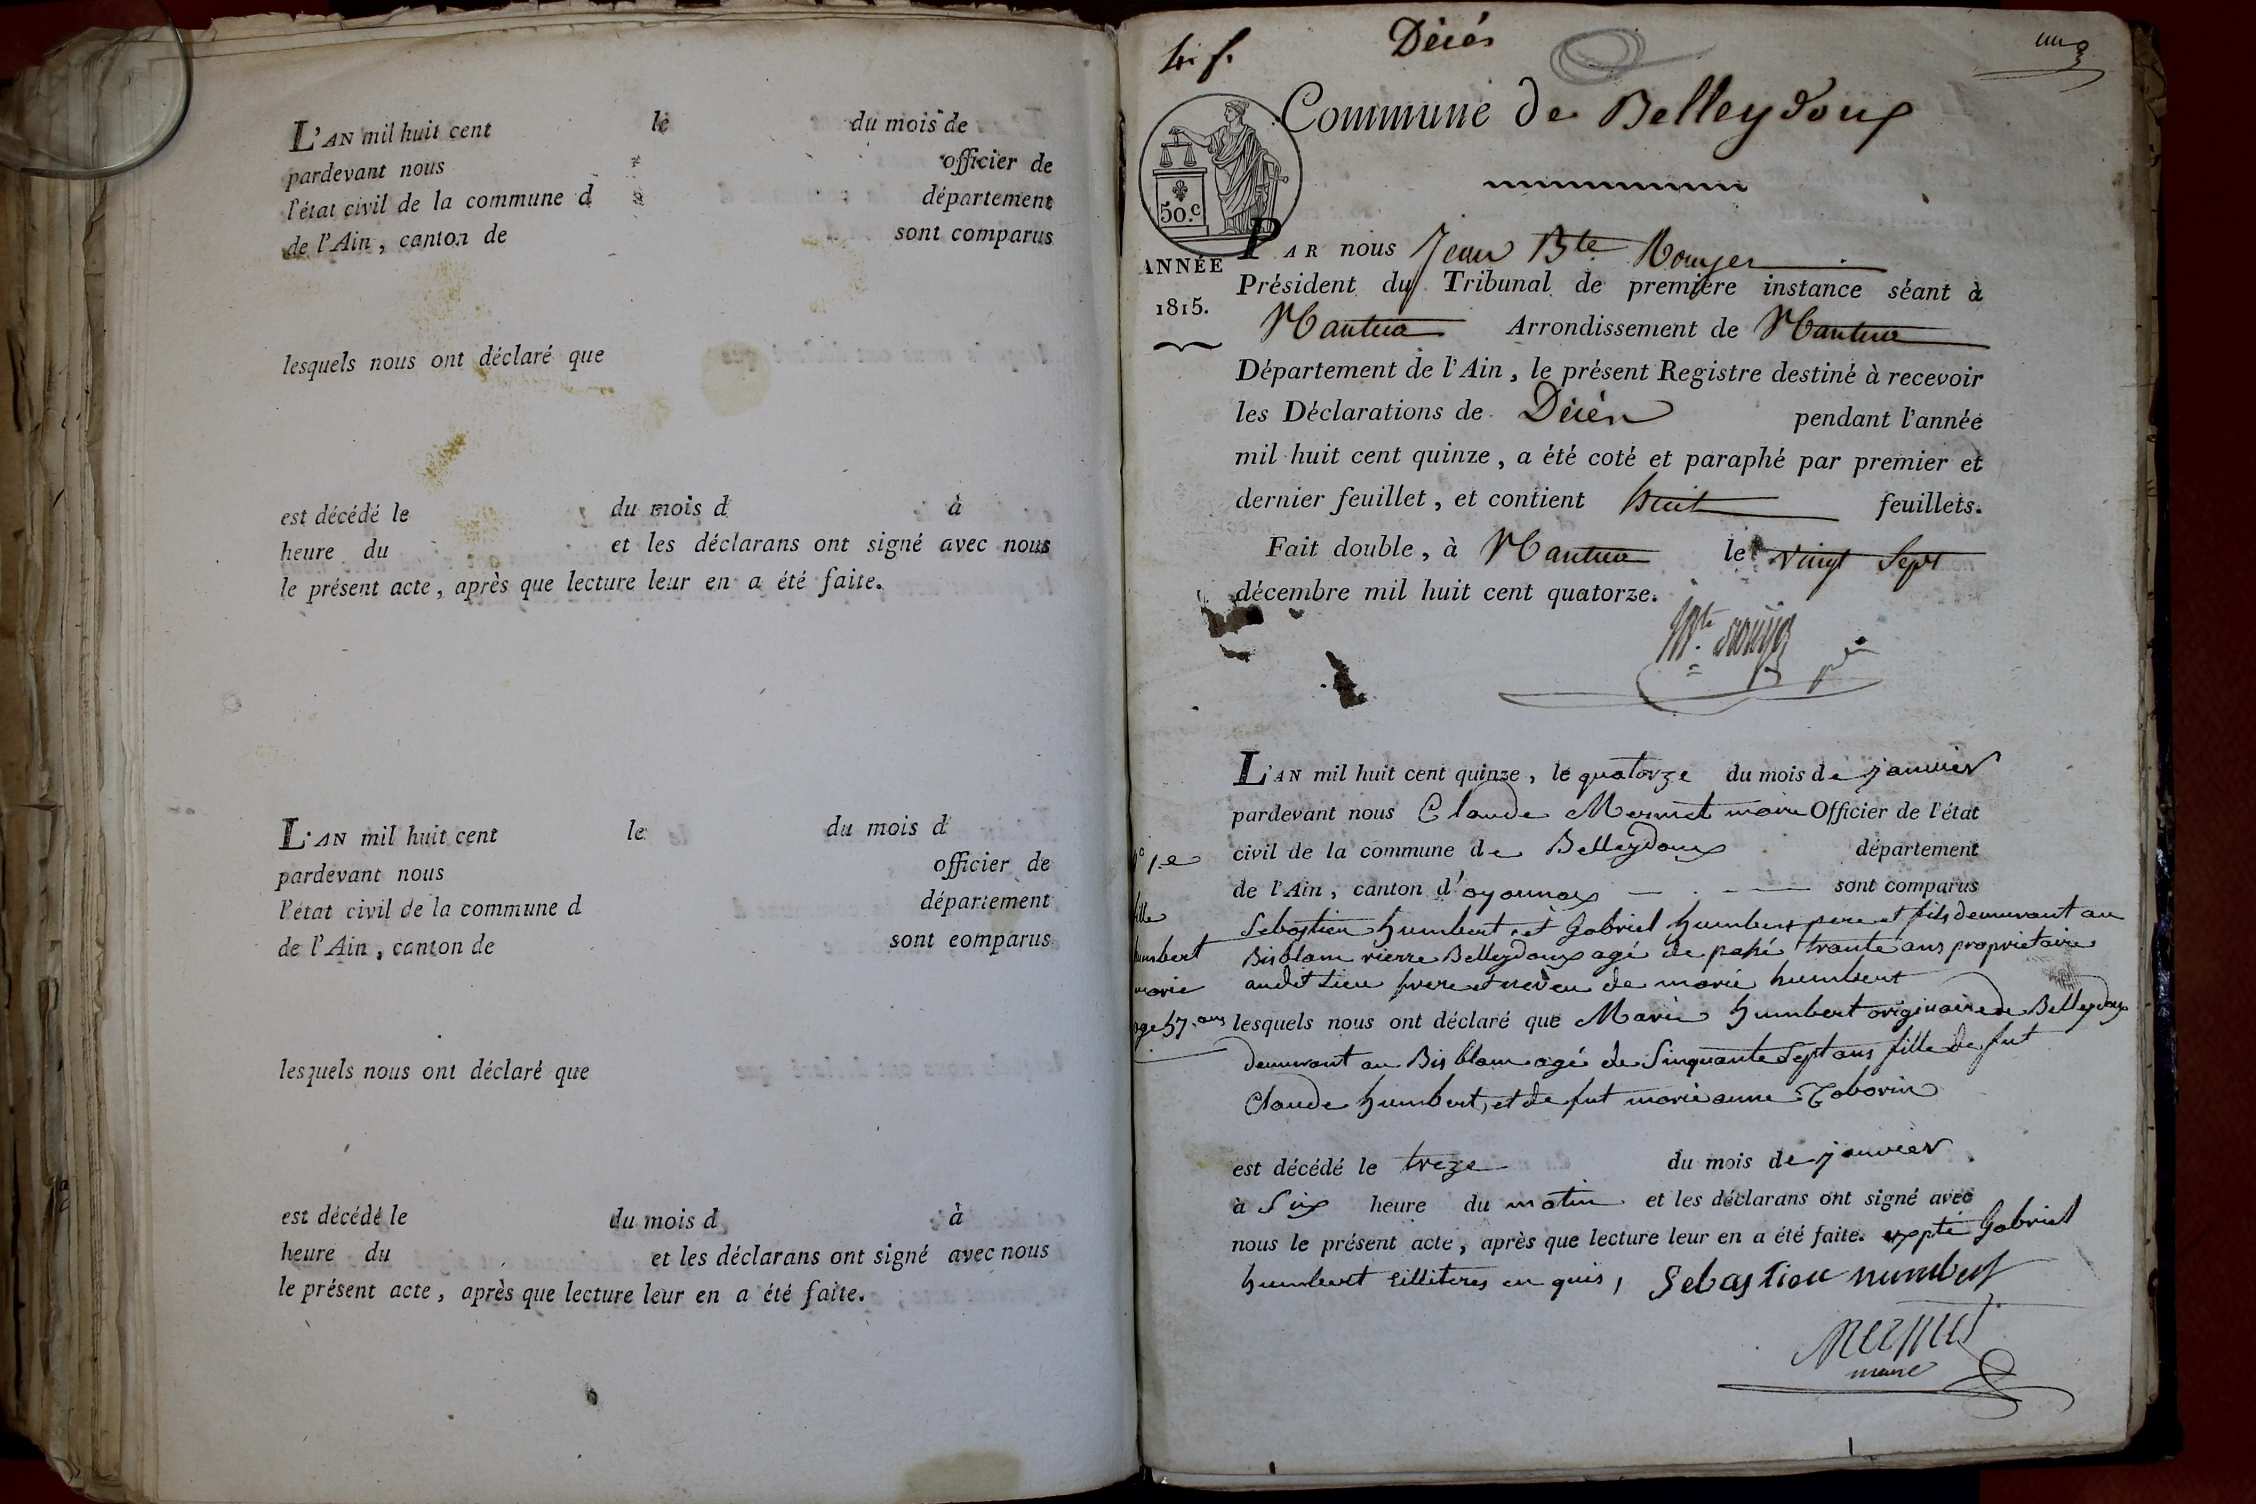 L'AN mil huit cent le du mois de
pardevant nous officier de
l'état civil de la commune d département
de l'Ain, canton de sont comparus
lesquels nous ont déclaré que
est décédé le du mois d à
heure du et les déclarans ont signé avec nous
le présent acte, après que lecture leur en a été faite.
L'AN mil huit cent le du mois d
pardevant nous officier de
l'état civil de la commune d département
de l'Ain, canton de sont comparus
lesquels nous ont déclaré que
est décédé le du mois d à
heure du et les déclarans ont signé avec nous
le présent acte, après que lecture leur en a été faite.
Décés
Commune de Belleydoux
50.c
ANNÉE
1815.
PAR nous Jean Bte Rouyer
Président du Tribunal de première instance séant à
Nantua Arrondissement de Nantua
Département de l'Ain, le présent Registre destiné à recevoir
les Déclarations de Décés pendant l'année
mil huit cent quinze, a été coté et paraphé par premier et
dernier feuillet, et contient huit feuillets.
Fait double, à Nantua le vingt sept
décembre mil huit cent quatorze.
L'AN mil huit cent quinze, le quatorze du mois de janvier
pardevant nous Claude Mermet maire Officier de l'état
civil de la commune de Belleydoux département
de l'Ain, canton d'oyonnax sont comparus
Sebastien humbert, et Gabriel humbert pere et fils demeurant au
Bisblam rierre Belleydoux agé de passé trante ans proprietaire
audit Lieu frere et neveu de marie humbert
lesquels nous ont déclaré que Marie humbert originaire de Belleydoux
demeurant au Bisblam agé de Sinquante Sept ans fille de fut
Claude humbert, et de fut marie anne Taborin
est décédé le treze du mois de janvier
à Six heure du matin et les déclarans ont signé avec
nous le présent acte, après que lecture leur en a été faite. expté Gabriel
humbert enquis, Sebastien humbert
Mermet
maire
fille
humbert
marie
age 57 ans